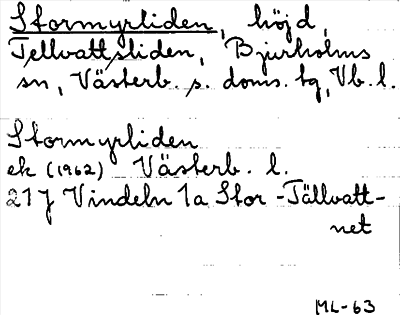 Stormyrliden, höjd,
Tellvattsliden, Bjurholms
sn, Västerb. s. doms. tg, Vb. l.
Stormyrliden
ek (1962) Västerb. l.
21J Vindeln 1a Stor-Tällvatt-
net
ML-63